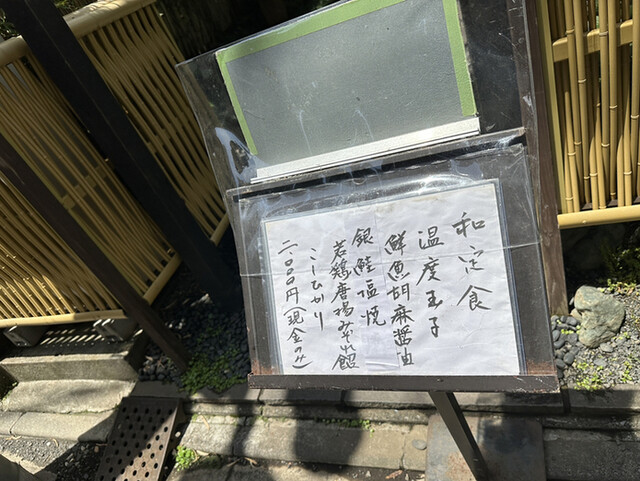 和定食
温度玉子
鮮魚胡麻醤油
銀鮭塩焼
若鶏唐揚みぞれ餡
こしひかり
二、000円(現金のみ)